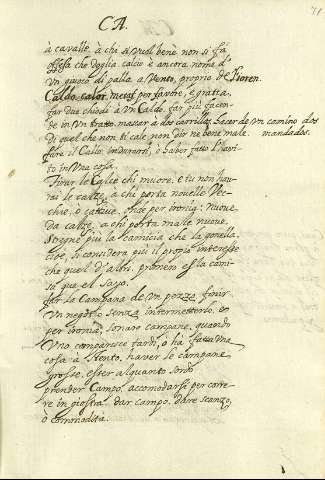 CA.
71
à cavallo, à che si vuol bene non si fà
offesa che doglia. calcio è ancora nome d'
Un giuoco di palla à Vento, proprio de Fioren.
Caldo calor metaf. per favore, e gratia.
far due chiodi à un Caldo. far più facen-
de in un tratto. matar à dos corrillos hacer de un camino dos
Di quel che non ti cale non dir ne bene male. mandados.
fare il Callo indurarsi, ò haver fatto l'habi-
to in Una cosa.
Tirar le Calze chi muore. e tu non hau-
rai le calze à chi porta novelle Vec-
chie, ò cattive. onde per ironia: nuove
da calze, à chi porta male nuove.
Stregne più la camicia che la gonella.
cioè, si considera più il proprio interesse
che quel d'altri. primero es la cami-
sa que el sayo.
far la Campana de Un pezzo finir
Un negotio senza intermetterlo. et
per ironia, sonare campane, quando
Uno comparisce tardi, ò ha fatto Una
cosa à stento. haver le campane
grosse. esser alquanto sordo
prender Campo. accomodarsi per corre-
re in giostra. dar campo. dare spazio,
ò commodità.